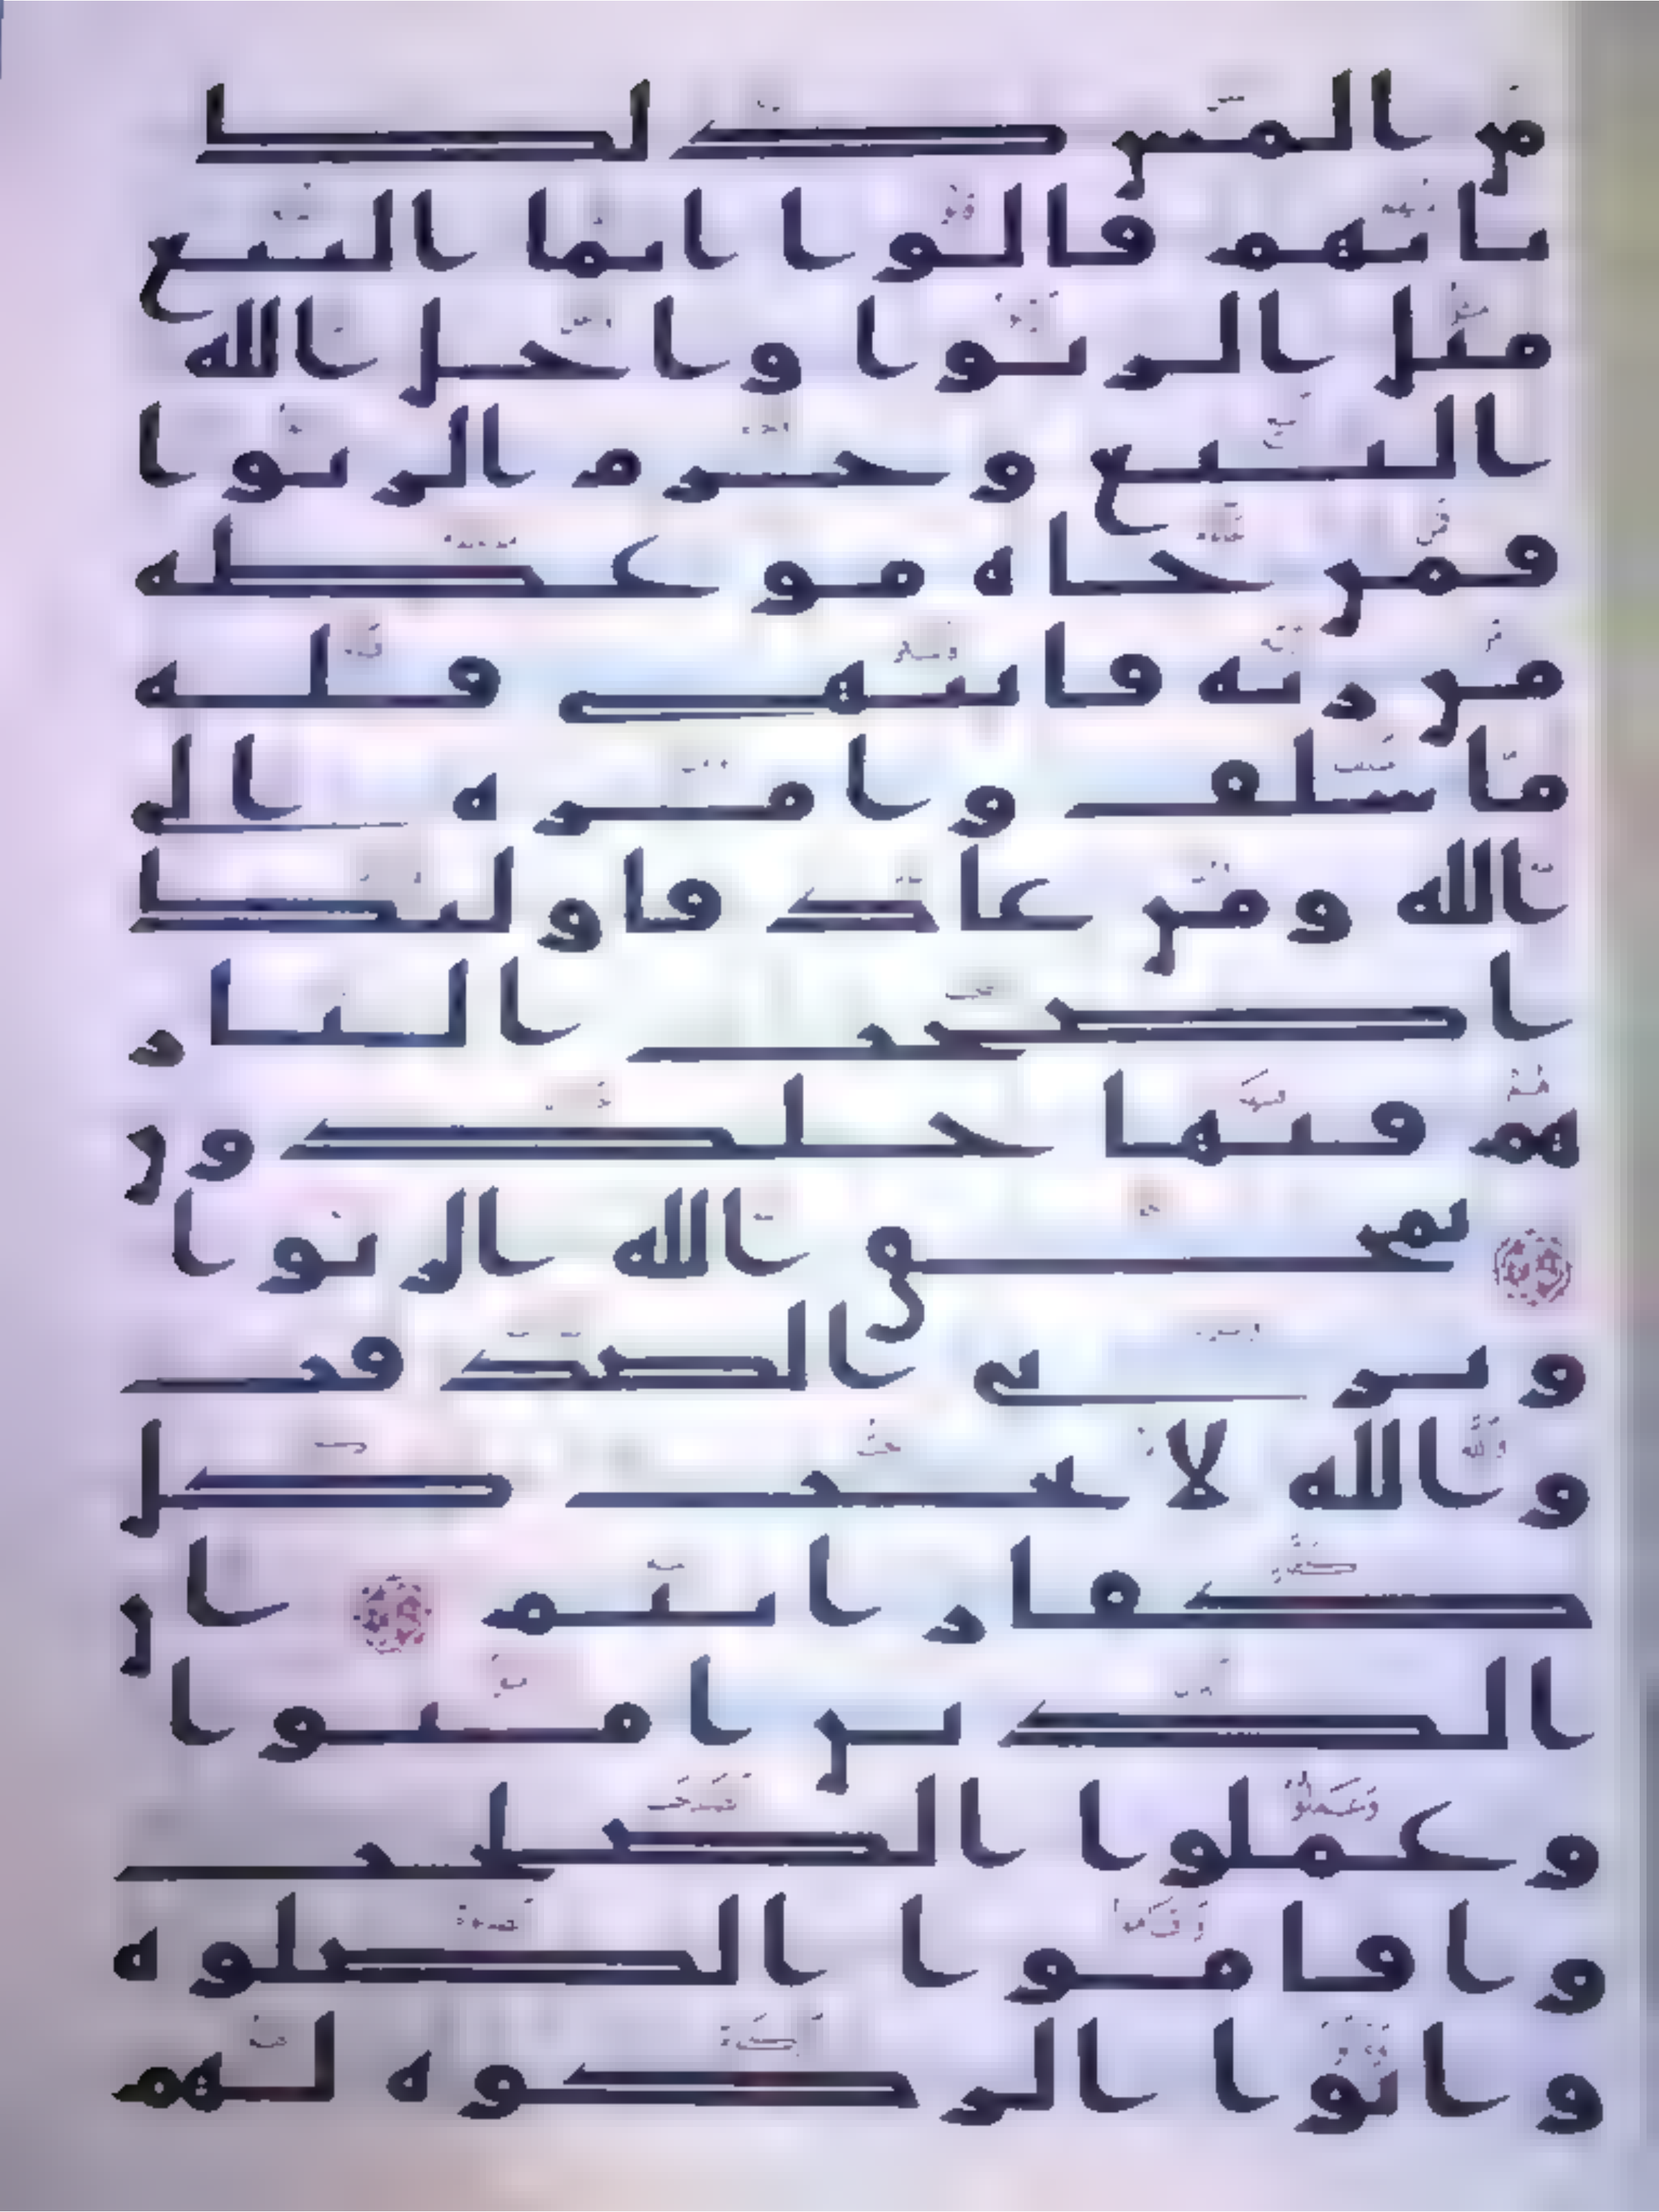 من المس ذلك
بانهم قالوا انما البيع
مثل الربوا واحل الله
البيع وحرم الربوا
فمن جاه موعظه
من ربه فانتهى فله
ما سلف وامره الى
الله ومن عاد فاولئك
اصحب النار
هم فيها خلدون
يمحق الله الربوا
ويربى الصدقت
والله لا يحب كل
كفار اثيم ان
الذين امنوا
وعملوا الصلحت
واقاموا الصلوه
واتوا الزكوه لهم